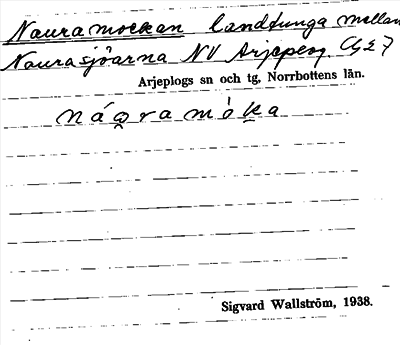 Nauramockan landtunga mellan
Naurasjöarna NV Arjeplog.
Arjeplogs sn och tg, Norrbottens län.
náu̯ramòk̬a
Sigvard Wallström, 1938.